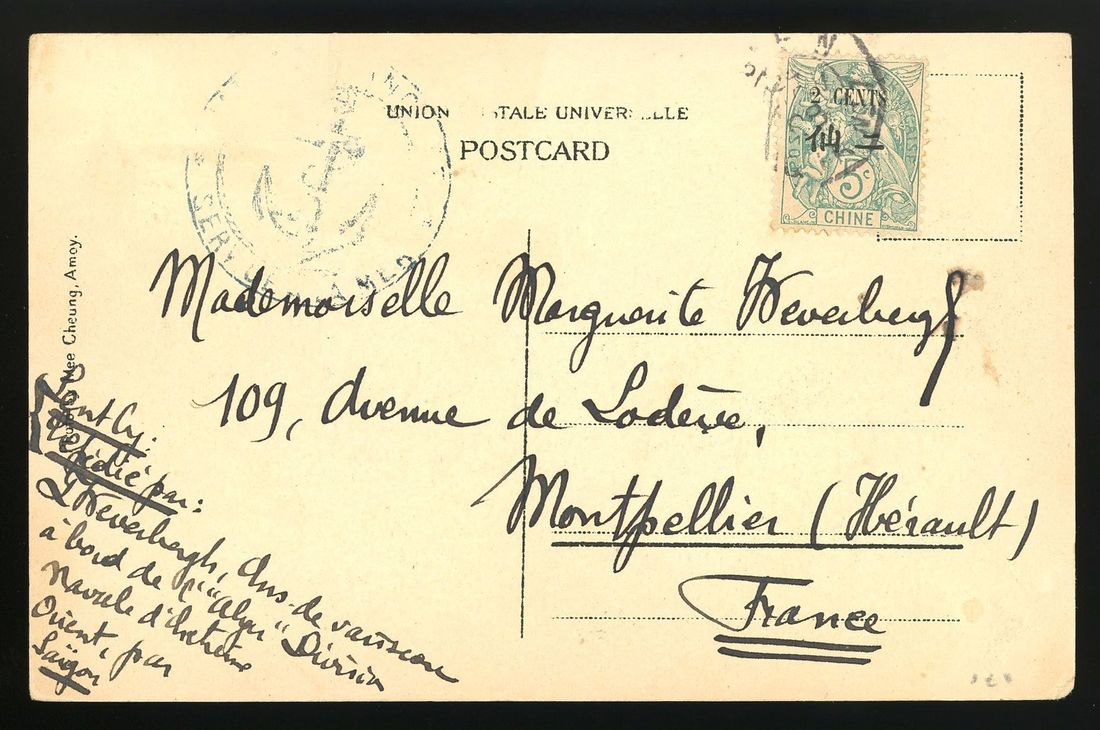 UNION STALE UNIVER LLE
POSTCARD
2 CENTS
仙二
POSTES
5c
CHINE
SER
Mee Cheung, Amoy.
Mademoiselle Marguerite Weverbergh
109, Avenue de Lodève,
Montpellier (Hérault)
France
expédié par:
L Weverbergh, Ens. de vaisseau
à bord de "Alger" Division
Navale d'Extrême
Orient, par
Saïgon